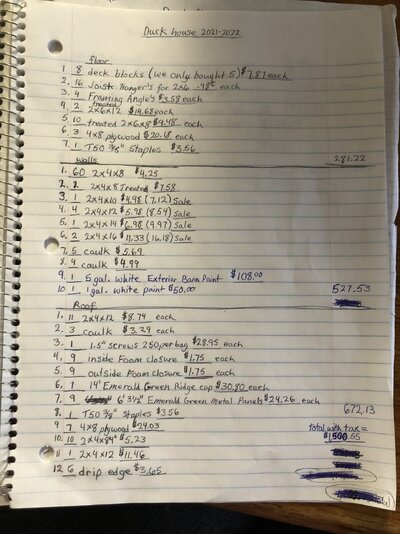 Duck house 2021-2022
floor
1. 8 deck blocks (we only bought 5) $7.87 each
2. 16 Joist Hanger's for 2x6 .98¢ each
3. 4 Framing Angle's $3.58 each
4. 2 treated 2x6x12 $14.68 each
5. 10 treated 2x6x8 $9.48 each
6. 3 4x8 plywood $20.18 each
7. 1 T50 3/8" Staples $3.56
walls 281.22
1. 60 2x4x8 $4.25
2. 2 2x4x8 Treated $7.58
3. 1 2x4x10 $4.98 (7.12) Sale
4. 4 2x4x12 $5.98 (8.54) Sale
5. 1 2x4x14 $6.98 (9.97) Sale
6. 2 2x4x16 $11.33 (16.18) Sale
7. 5 caulk $5.69
8. 4 caulk $4.99
9. 1 5 gal. white Exterior Barn Paint $108.00
10. 1 1 gal. white paint $50.00 527.53
Roof
1. 11 2x4x12 $8.74 each
2. 3 caulk $3.29 each
3. 1 1.5" screws 250 per bag $28.95 each
4. 9 inside Foam closure $1.75 each
5. 9 outside Foam closure $1.75 each
6. 1 14' Emerald Green Ridge cap $30.80 each
7. 9 6' 3 1/2" Emerald Green Metal Panels $24.26 each
8. 1 T50 3/8" Staples $3.56 672.13
9. 7 4x8 plywood $24.03 total with tax =
10. 10 2x4x84" $5.23 $1,500.55
11. 1 2x4x12 $11.46
12. 6 drip edge $3.65